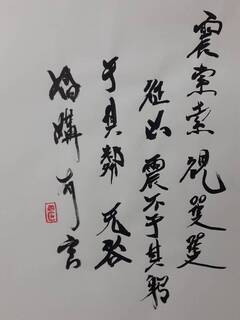 震索索視矍矍
征凶震不于其躬
于其鄰无咎
婚媾有言